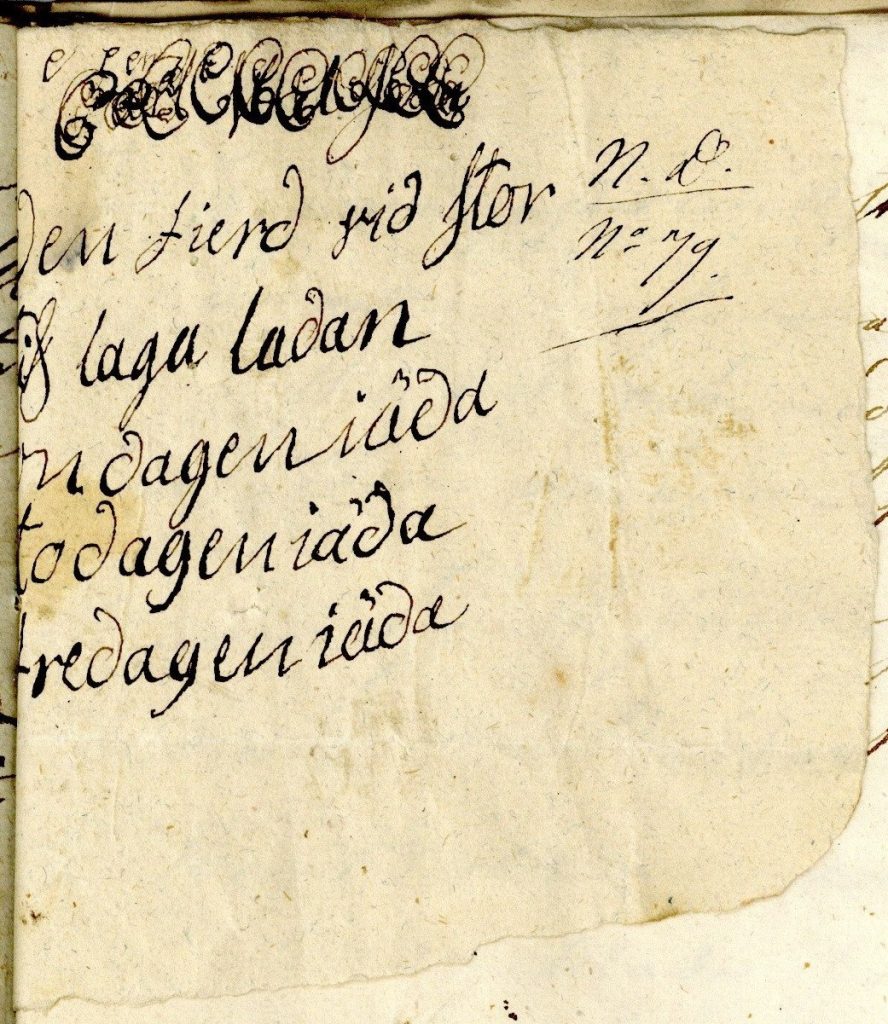 N. d.
No 79.
den fierd vid stor
laga ladan
n dagen iäda
todagen iäda
fredagen iäda